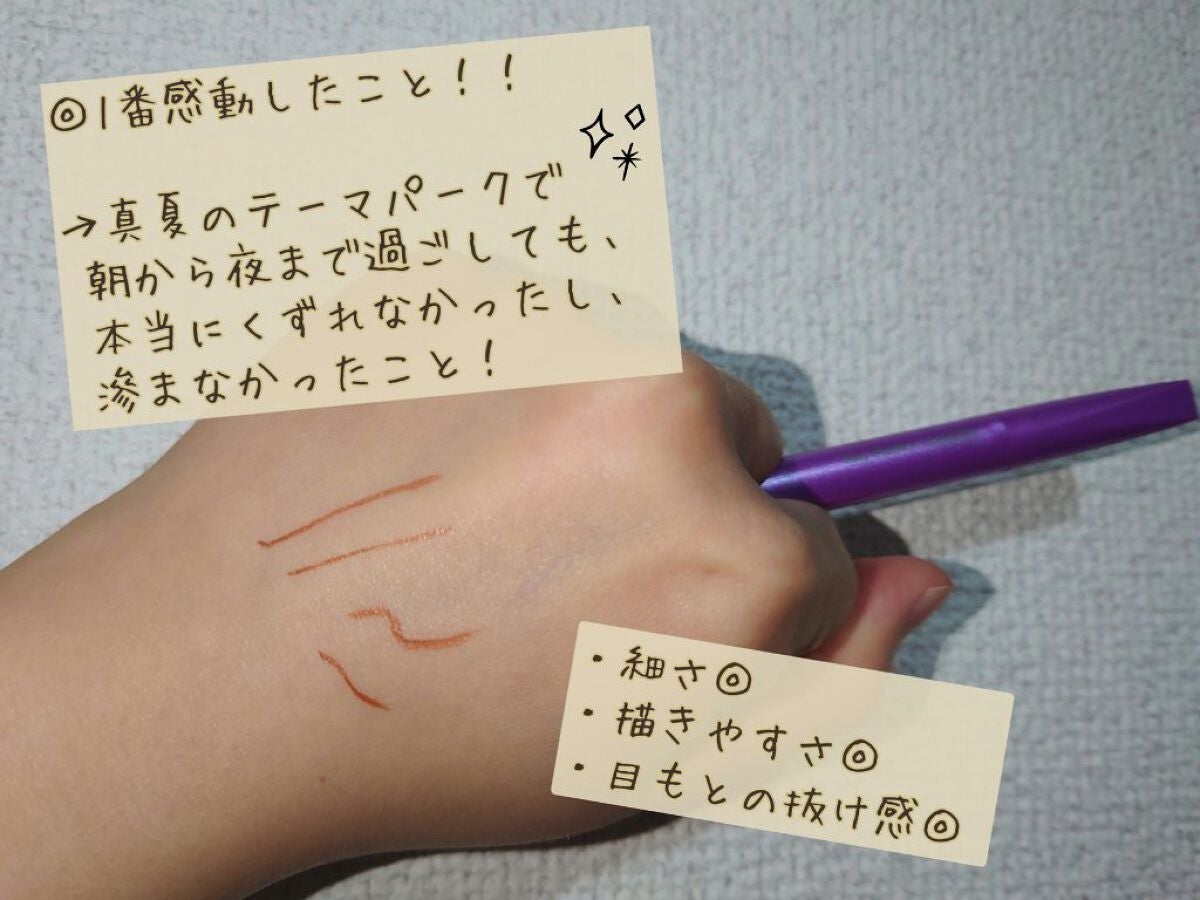 ◎1番感動したこと！！
→真夏のテーマパークで
朝から夜まで過ごしても、
本当にくずれなかったし、
滲まなかったこと！
・細さ◎
・描きやすさ◎
・目もとの抜け感◎